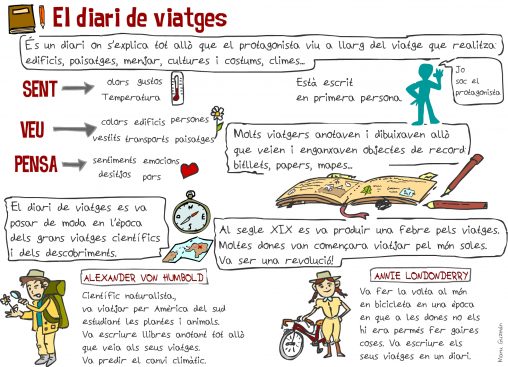 El diari de viatges
És un diari on s'explica tot allò que el protagonista viu a llarg del viatge que realitza:
edificis, paisatges, menjar, cultures i costums, climes...
SENT
olors gustos
Temperatura
Està escrit
en primera persona.
Jo
soc el
protagonista
VEU
colors edificis persones
vestits transports paisatges
PENSA
sentiments emocions
desitjos pors
Molts viatgers anotaven i dibuixaven allò
que veien i enganxaven objectes de record:
bitllets, papers, mapes...
El diari de viatges es va
posar de moda en l'època
dels grans viatges científics
i dels descobriments.
Al segle XIX es va produir una febre pels viatges.
Moltes dones van començara viatjar pel món soles.
Va ser una revolució!
ALEXANDER VON HUMBOLD
Científic naturalista,
va viatjar per Amèrica del sud
estudiant les plantes i animals.
Va escriure llibres anotant tot allò
que veia als seus viatges.
Va predir el canvi climàtic.
ANNIE LONDONDERRY
Va fer la volta al món
en bicicleta en una època
en que a les dones no els
hi era permés fer gaires
coses. Va escriure els
seus viatges en un diari.
Manu Guzmán